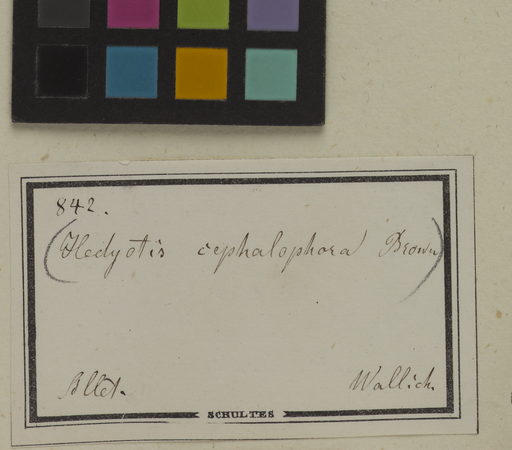 842.
(Hedyotis cephalophora Brown)
Wallich.
SCHULTES